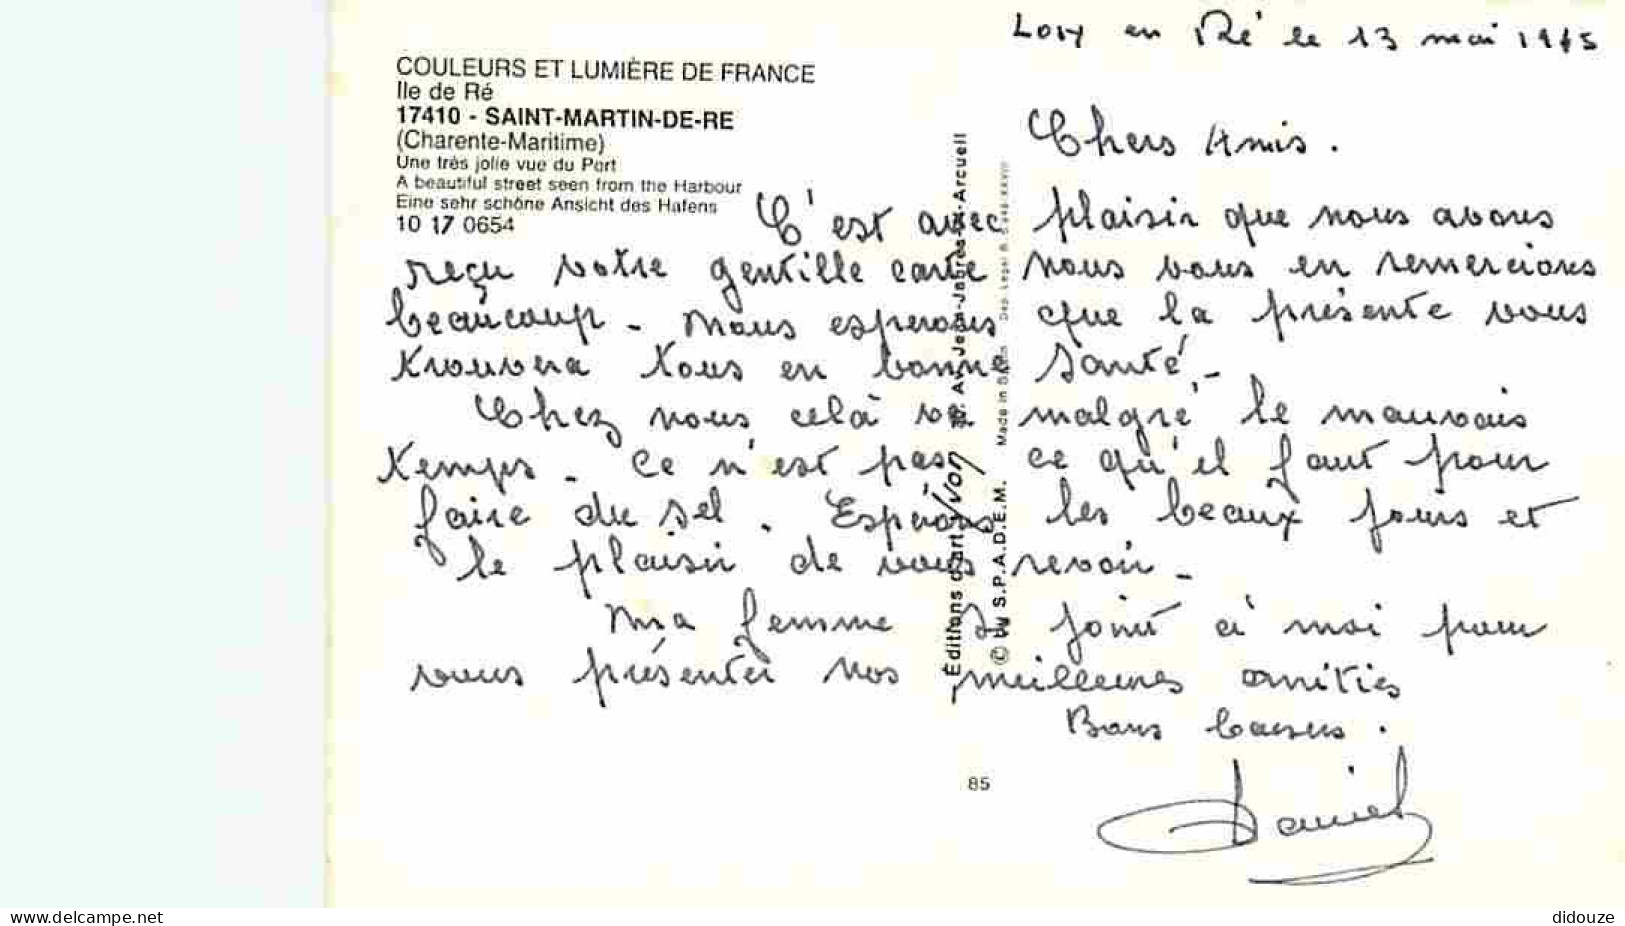 Loix en Ré le 13 mai 1985
COULEURS ET LUMIÈRE DE FRANCE
Ile de Ré
17410 - SAINT-MARTIN-DE-RE
(Charente-Maritime)
Une très jolie vue du Port
A beautiful street seen from the Harbour
Eine sehr schöne Ansicht des Hafens
10 17 0654
Chers Amis.
C'est avec plaisir que nous avons
reçu votre gentille carte nous vous en remercions
beaucoup - Nous esperons que la présente vous
trouvera tous en bonne santé -
Chez nous celà va malgré le mauvais
temps - Ce n'est pas ce qu'il faut pour
faire du sel. Espérons les beaux jours et
le plaisir de vous revoir -
Ma femme se joint à moi pour
vous présenter nos meilleures amitiés
Bons baisers.
Daniel
Éditions d'art YVON Av. Jean-Jaurès Arcueil
© by S.P.A.D.E.M. Made in Dép. Légal
85
www.delcampe.net
didouze